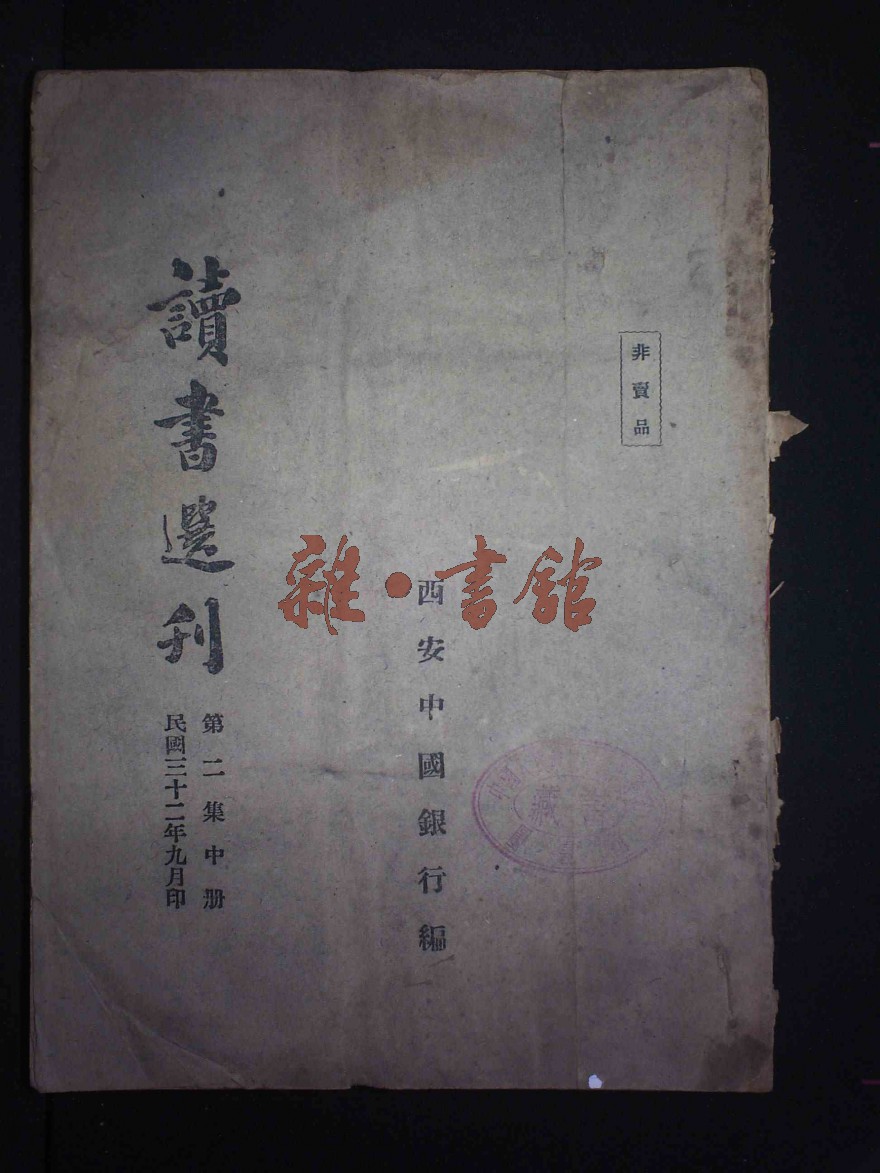 非賣品
西安中國銀行編
讀書選刊
第二集中册
民國三十二年九月印
雜·書館
藏書